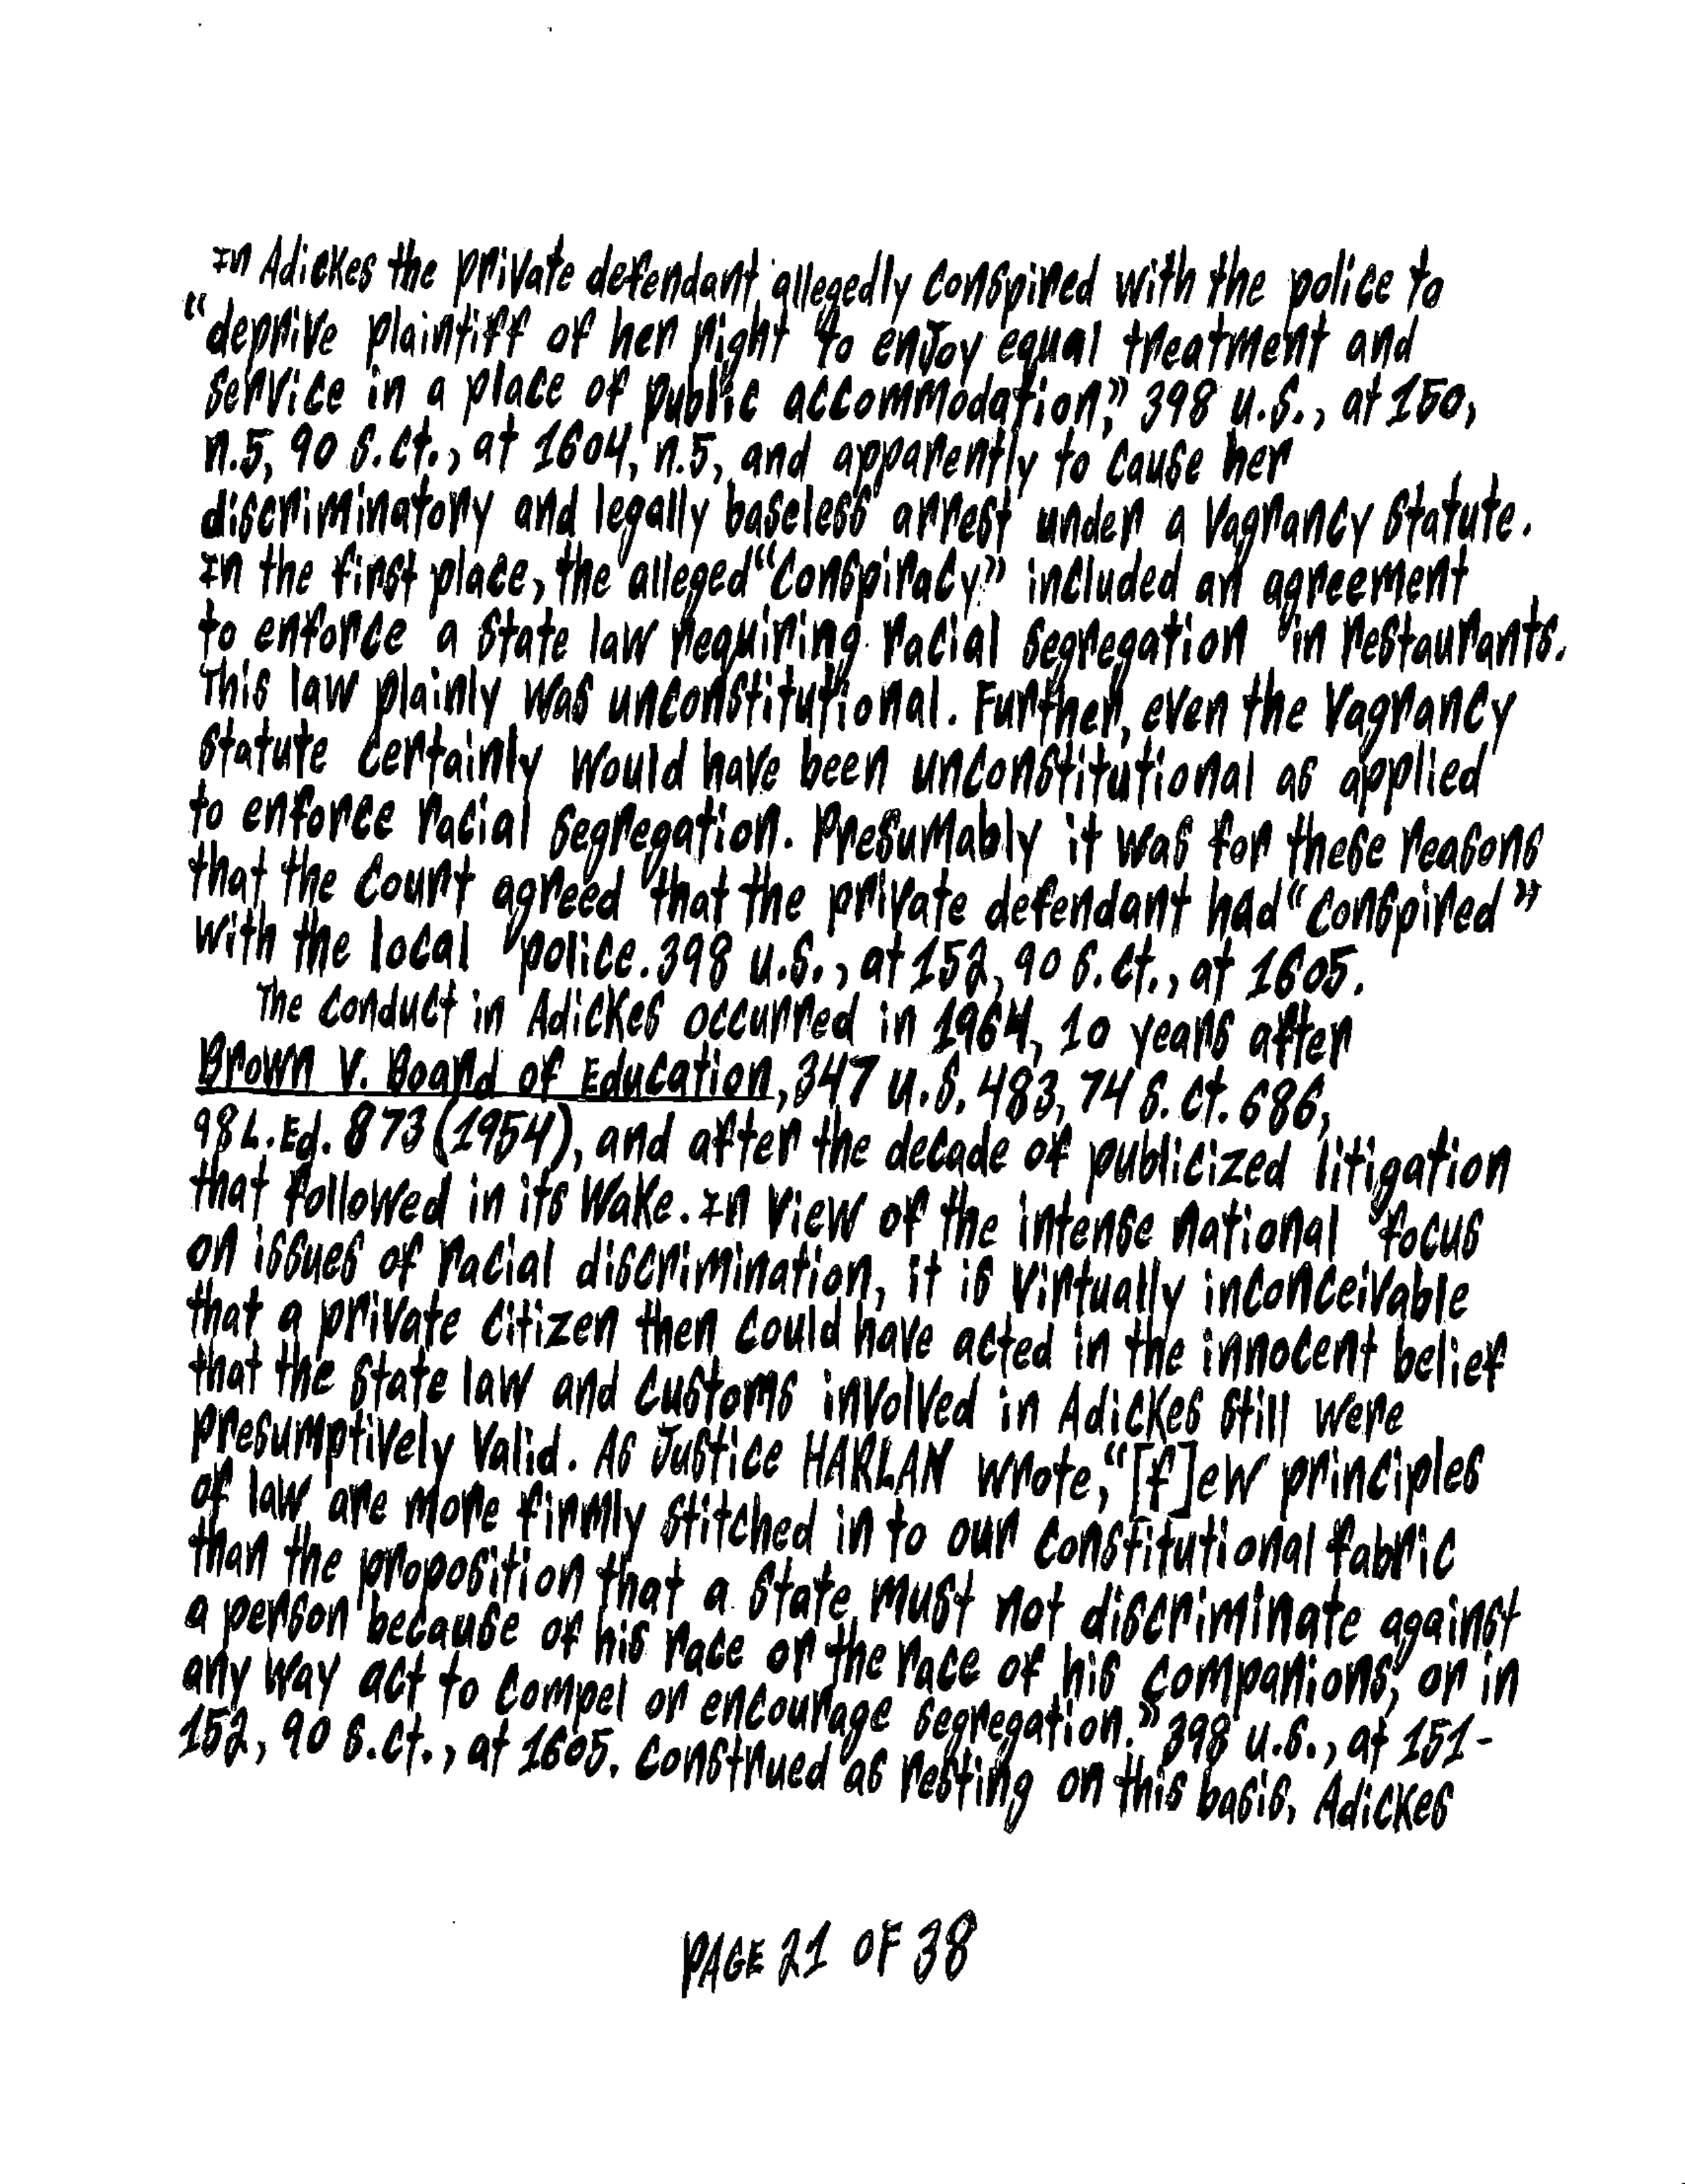 In Adickes the private defendant allegedly conspired with the police to
"deprive plaintiff of her right to enjoy equal treatment and
service in a place of public accommodation," 398 U.S., at 150,
n.5, 90 S.Ct., at 1604, n.5, and apparently to cause her
discriminatory and legally baseless arrest under a vagrancy statute.
In the first place, the alleged "conspiracy" included an agreement
to enforce a state law requiring racial segregation in restaurants.
This law plainly was unconstitutional. Further, even the vagrancy
statute certainly would have been unconstitutional as applied
to enforce racial segregation. Presumably it was for these reasons
that the Court agreed that the private defendant had "conspired"
with the local police. 398 U.S., at 152, 90 S.Ct., at 1605.
The conduct in Adickes occurred in 1964, 10 years after
Brown v. Board of Education, 347 U.S. 483, 74 S.Ct. 686,
98 L.Ed. 873 (1954), and after the decade of publicized litigation
that followed in its wake. In view of the intense national focus
on issues of racial discrimination, it is virtually inconceivable
that a private citizen then could have acted in the innocent belief
that the state law and customs involved in Adickes still were
presumptively valid. As Justice HARLAN wrote, "[f]ew principles
of law are more firmly stitched in to our constitutional fabric
than the proposition that a State must not discriminate against
a person because of his race or the race of his companions, or in
any way act to compel or encourage segregation." 398 U.S., at 151-
152, 90 S.Ct., at 1605. Construed as resting on this basis, Adickes
PAGE 21 OF 38